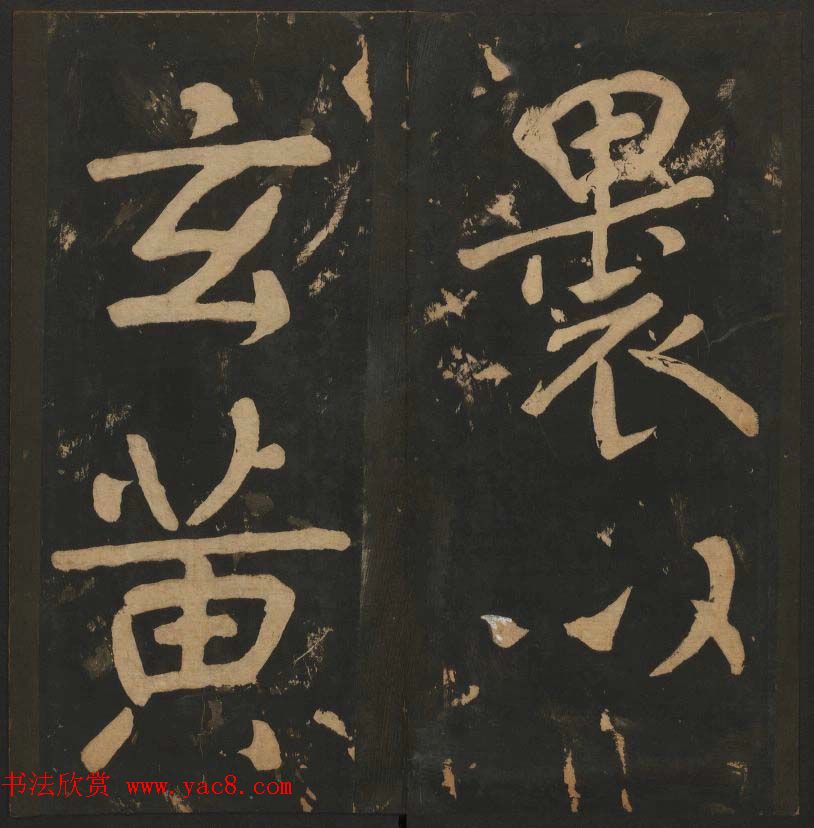 裹以
玄黄
书法欣赏 www.yac8.com